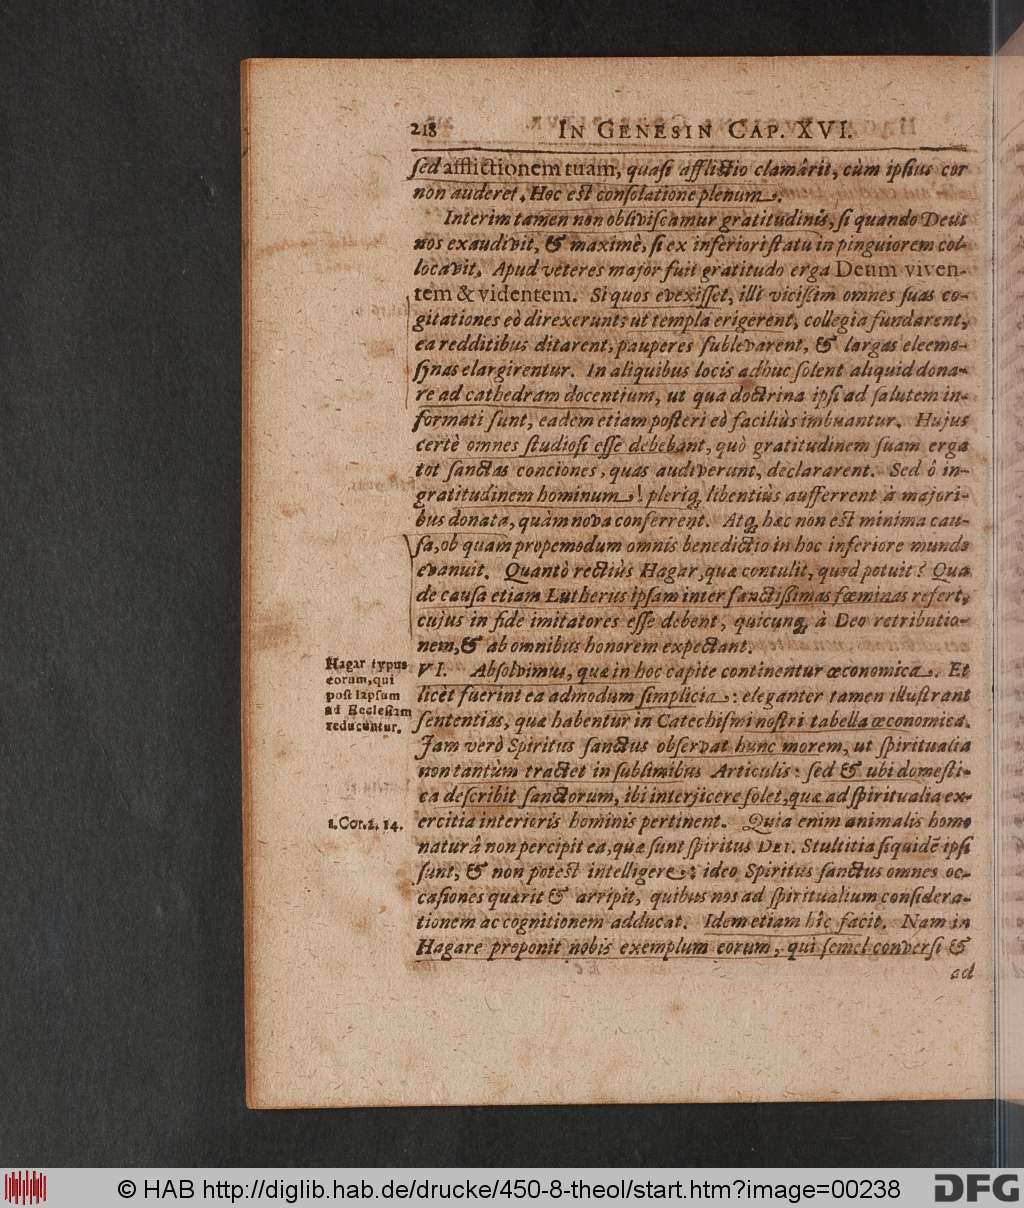 218 IN GENESIN CAP. XVI.
sed afflictionem tuam, quasi afflictio clamârit, cùm ipsius cor
non auderet. Hoc est consolatione plenum.
Interim tamen non obliviscamur gratitudinis, si quando Deus
nos exaudivit, & maximè, si ex inferiori statu in pinguiorem col-
locavit. Apud veteres major fuit gratitudo erga Deum viven-
tem & videntem. Si quos evexisset, illi vicissim omnes suas co-
gitationes eò direxerunt, ut templa erigerent, collegia fundarent,
ea redditibus ditarent, pauperes sublevarent, & largas eleemo-
synas elargirentur. In aliquibus locis adhuc solent aliquid dona-
re ad cathedram docentium, ut qua doctrina ipsi ad salutem in-
formati sunt, eadem etiam posteri eò faciliùs imbuantur. Hujus
certè omnes studiosi esse debebant, quò gratitudinem suam erga
tot sanctas conciones, quas audiverunt, declararent. Sed ô in-
gratitudinem hominum! pleriq; libentiùs aufferrent à majori-
bus donata, quàm nova conferrent. Atq; hæc non est minima cau-
sa, ob quam propemodum omnis benedictio in hoc inferiore mundo
evanuit. Quantò rectiùs Hagar, quæ contulit, quod potuit? Qua
de causa etiam Lutherus ipsam inter sanctissimas fœminas refert,
cujus in fide imitatores esse debent, quicunq; à Deo retributio-
nem, & ab omnibus honorem expectant.
Hagar typus
eorum, qui
post lapsum
ad Ecclesiam
reducuntur.
VI. Absolvimus, quæ in hoc capite continentur œconomica. Et
licèt fuerint ea admodum simplicia: eleganter tamen illustrant
sententias, quæ habentur in Catechismi nostri tabella œconomica.
Jam verò Spiritus sanctus observat hunc morem, ut spiritualia
non tantùm tractet in sublimibus Articulis: sed & ubi domesti-
ca describit sanctorum, ibi interjicere solet, quæ ad spiritualia ex-
1. Cor. 2, 14.
ercitia interioris hominis pertinent. Quia enim animalis homo
naturâ non percipit ea, quæ sunt spiritus DEI. Stultitia siquidē ipsi
sunt, & non potest intelligere: ideo Spiritus sanctus omnes oc-
casiones quærit & arripit, quibus nos ad spiritualium considera-
tionem ac cognitionem adducat. Idem etiam hîc facit. Nam in
Hagare proponit nobis exemplum eorum, qui semel conversi &
ad
© HAB http://diglib.hab.de/drucke/450-8-theol/start.htm?image=00238
DFG